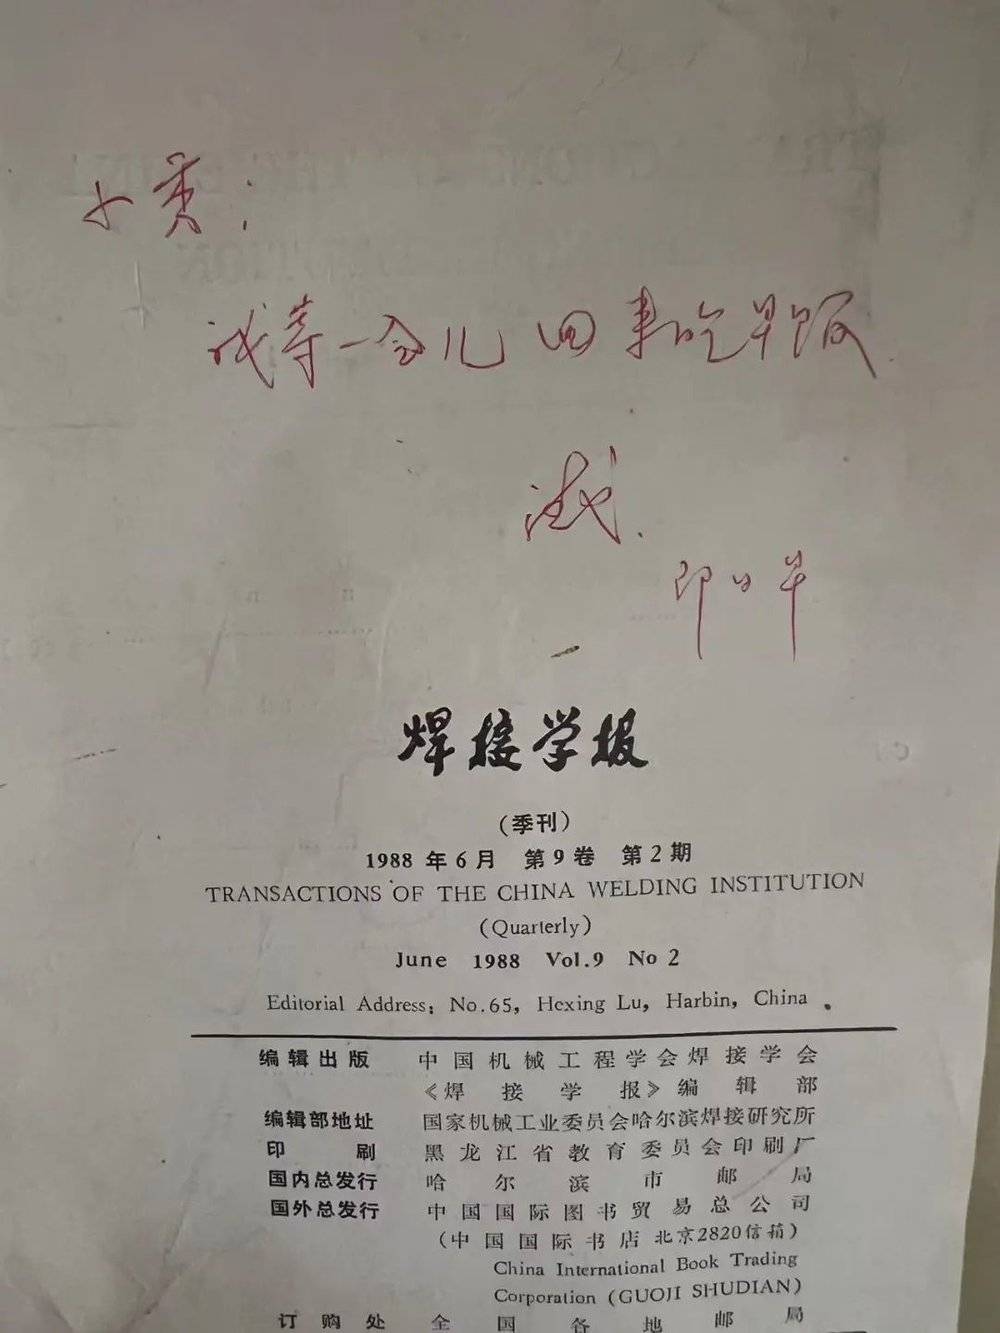 小黄：
我等一会儿回来吃早饭
即日早
焊接学报
（季刊）
1988年6月 第9卷 第2期
TRANSACTIONS OF THE CHINA WELDING INSTITUTION
(Quarterly)
June 1988 Vol.9 No 2
Editorial Address: No.65, Hexing Lu, Harbin, China.
编辑出版 中国机械工程学会焊接学会
《焊接学报》编辑部
编辑部地址 国家机械工业委员会哈尔滨焊接研究所
印刷 黑龙江省教育委员会印刷厂
国内总发行 哈尔滨市邮局
国外总发行 中国国际图书贸易总公司
（中国国际书店 北京2820信箱）
China International Book Trading
Corporation (GUOJI SHUDIAN)
订购处 全国各地邮局